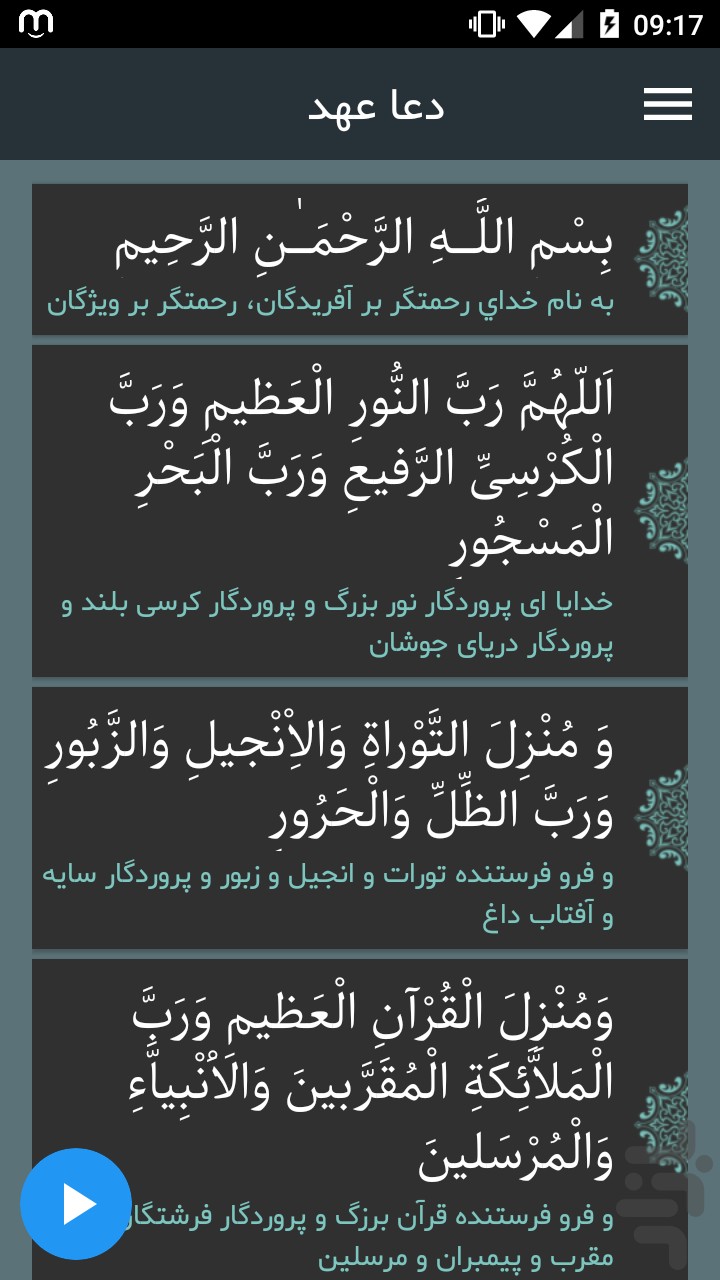 09:17
دعا عهد
بِسْمِ اللَّـهِ الرَّحْمَـٰنِ الرَّحِيمِ
به نام خداي رحمتگر بر آفريدگان، رحمتگر بر ويژگان
اَللّهُمَّ رَبَّ النُّورِ الْعَظيمِ وَرَبَّ
الْكُرْسِىِّ الرَّفيعِ وَرَبَّ الْبَحْرِ
الْمَسْجُورِ
خدایا ای پروردگار نور بزرگ و پروردگار کرسی بلند و
پروردگار دریای جوشان
وَ مُنْزِلَ التَّوْراةِ وَالاِْنْجيلِ وَالزَّبُورِ
وَرَبَّ الظِّلِّ وَالْحَرُورِ
و فرو فرستنده تورات و انجیل و زبور و پروردگار سایه
و آفتاب داغ
وَمُنْزِلَ الْقُرْآنِ الْعَظيمِ وَرَبَّ
الْمَلاَّئِكَةِ الْمُقَرَّبينَ وَالاَْنْبِياَّءِ
وَالْمُرْسَلينَ
و فرو فرستنده قرآن برزگ و پروردگار
مقرب و پیمبران و مرسلین